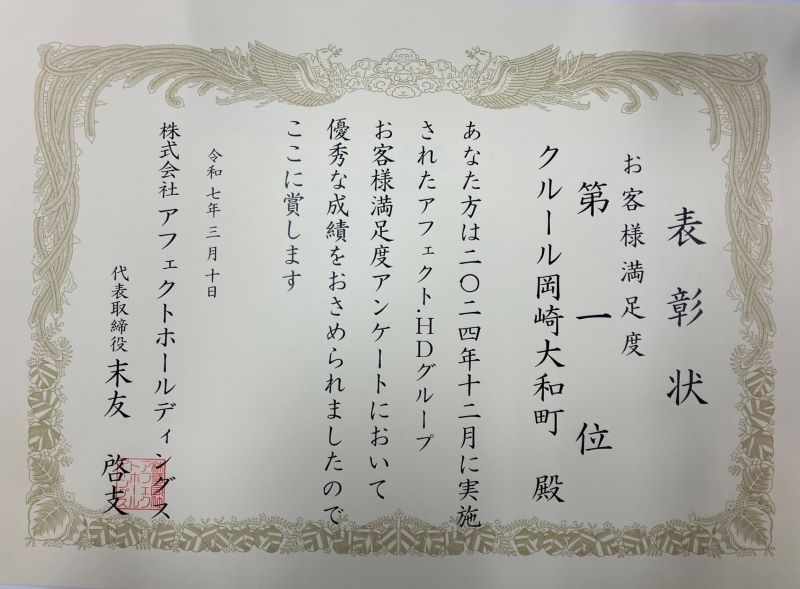 表彰状
お客様満足度
第一位
クルール岡崎大和町 殿
あなた方は二〇二四年十二月に実施
されたアフェクト.HDグループ
お客様満足度アンケートにおいて
優秀な成績をおさめられましたので
ここに賞します
令和七年三月十日
株式会社 アフェクトホールディングス
代表取締役 末友 啓支